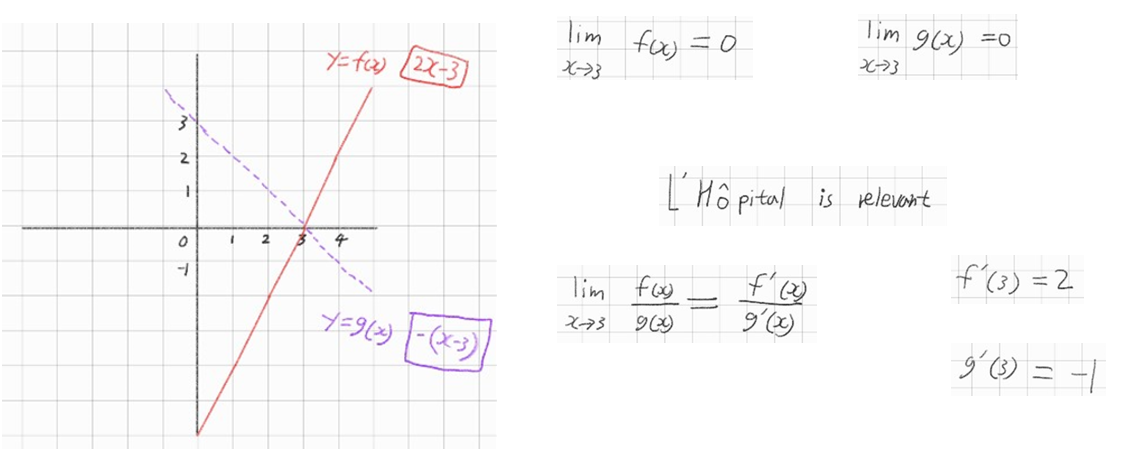 y=f(x) 2x-3
3
2
1
0 1 2 3 4
-1
y=g(x) -(x-3)
lim f(x) = 0
x→3
lim g(x) =0
x→3
L'Hôpital is relevant
lim f(x)/g(x) = f'(x)/g'(x)
x→3
f'(3) = 2
g'(3) = -1